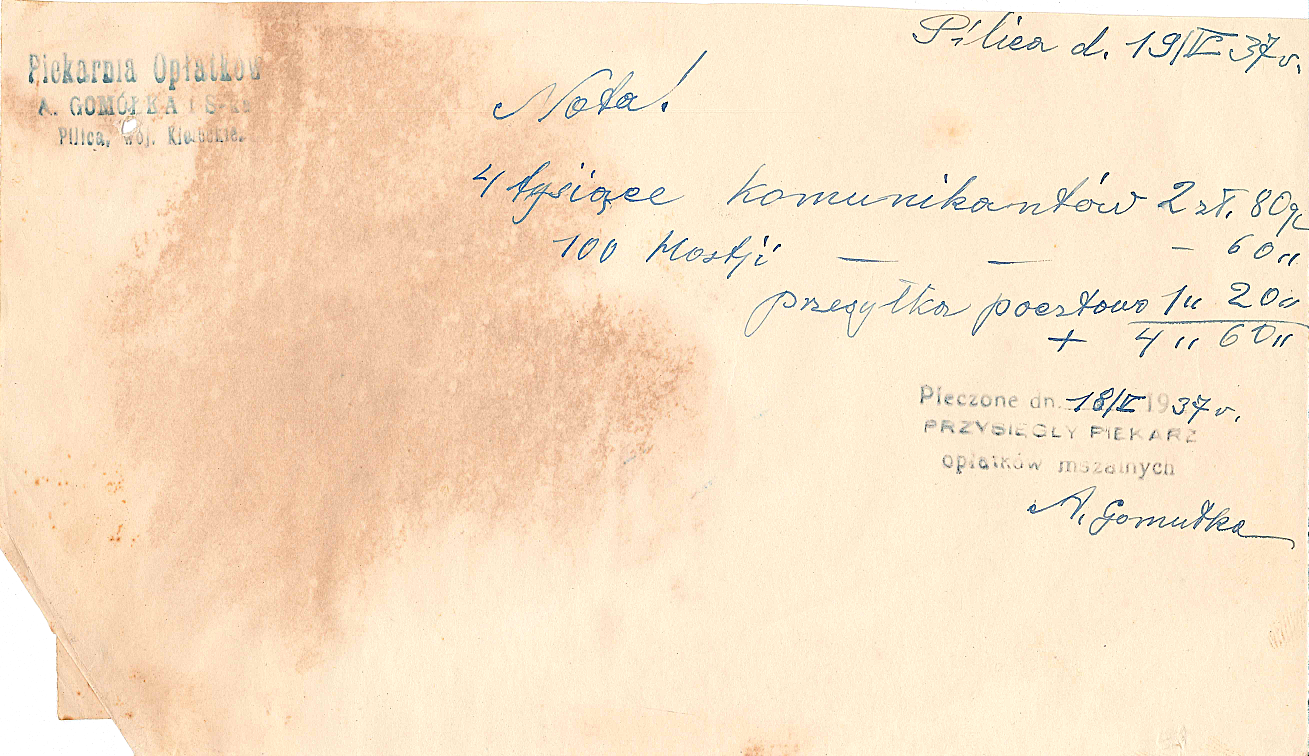 Piekarnia Opłatków
A. GOMÓŁKA i S-ka
Pilica, woj. Kieleckie.
Pilica d. 19/II 37 r.
Nota!
4 tysiące komunikantów 2 zł. 80 gr
100 Hostji — — - 60 „
przesyłka pocztowa 1 „ 20 „
+ 4 „ 60 „
Pieczone dn. 18/II 1937 r.
PRZYSIĘGŁY PIEKARZ
opłatków mszalnych
A. Gomułka